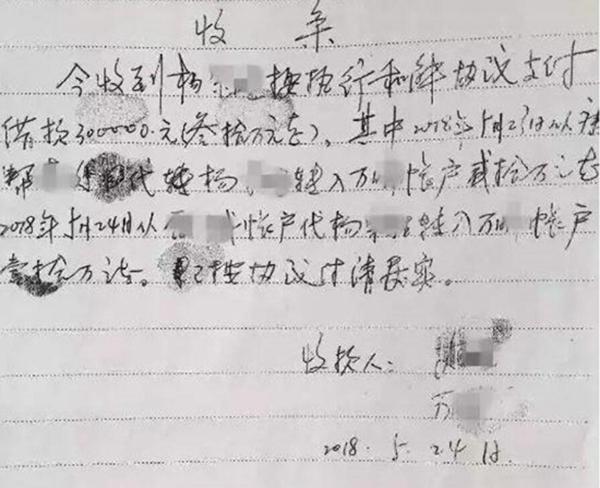 收条
今收到杨 按执行和解协议支付
借款300000.元(叁拾万元正)。其中2018年5月23日从
帮 代转杨 转入万 帐户贰拾万元正
2018年5月24日从 帐户代杨 转入万 帐户
壹拾万元。已按协议付清属实。
收款人:
万
2018.5.24日.